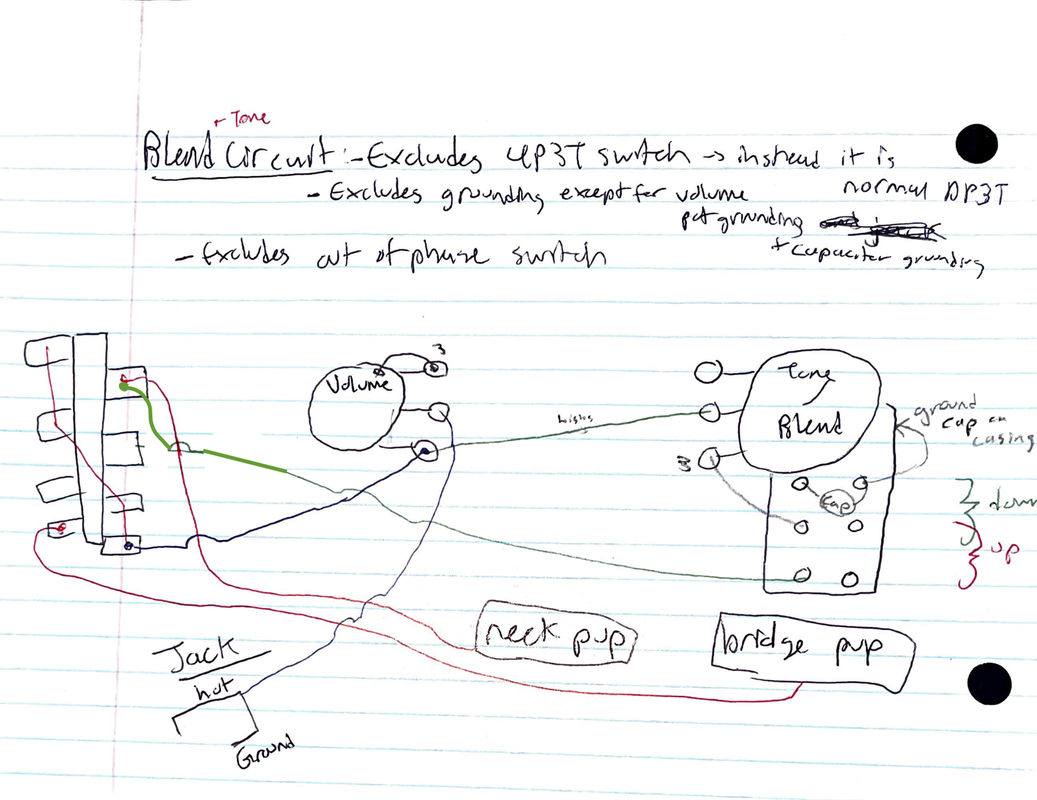 + Tone
Blend Circuit :- Excludes 4P3T switch → instead it is
normal DP3T
- Excludes grounding except for volume
pot grounding
+ capacitor grounding
- Excludes out of phase switch
3
Volume
Tone
Blend
3
ground
cap on
casing
cap
down
up
neck pup
bridge pup
Jack
hot
Ground